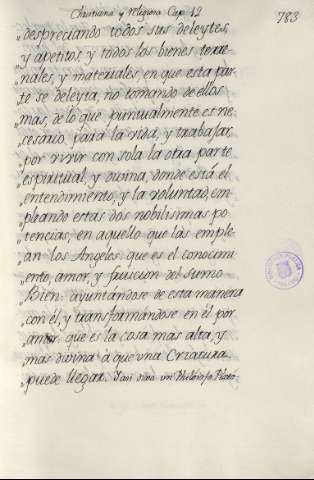 Christiana y Religiosa Cap. 12
783
„despreciando todos sus deleytes,
„y apetitos, y todos los bienes terre
„nales, y materiales, en que esta par
„te se deleyta, no tomando de ellos
„mas de lo que puntualmente es ne
„cesario para la vida, y trabajar
„por vivir con sola la otra parte
„espiritual, y divina, donde está el
„entendimiento, y la voluntad, em
„pleando estas dos nobilisimas po
„tencias, en aquello que las emple
„an los Angeles: que es el conocimi
„ento, amor, y fruicion del Sumo
„Bien: ayuntandose de esta manera
„con él, y transformandose en él por
„amor, que es la cosa mas alta, y
„mas divina à que una Criatura
„puede llegar. Tan divino un Philosofo Plato